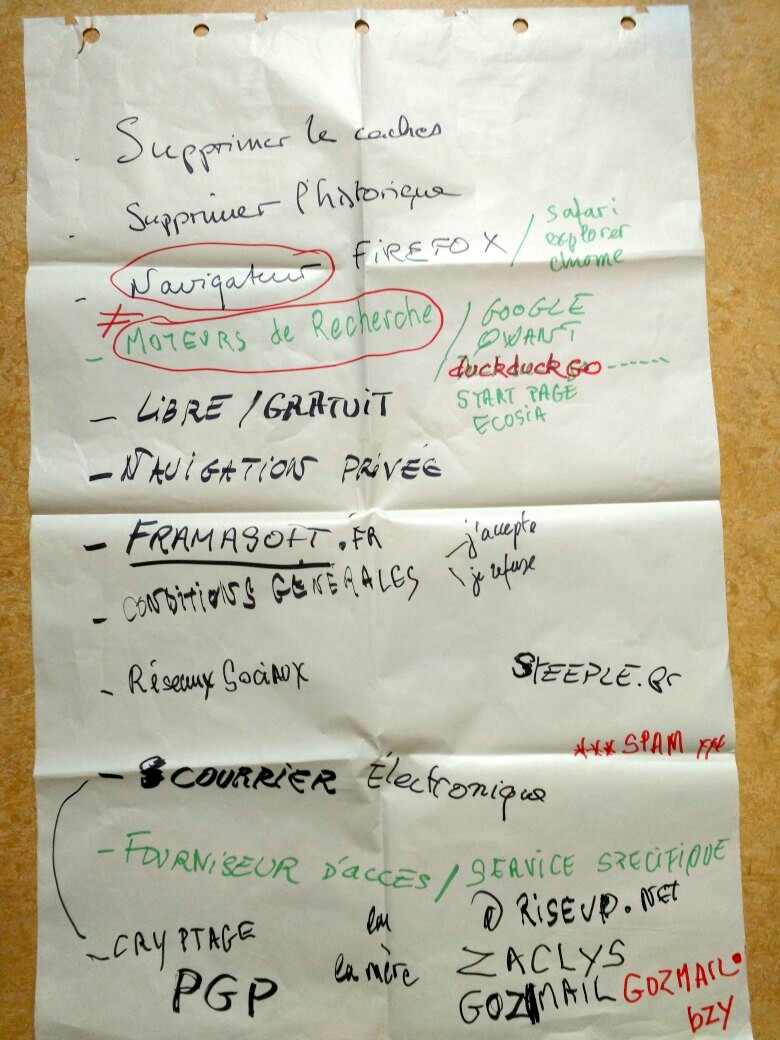 - Supprimer le caches
- Supprimer l'historique
- Navigateur FIREFOX / safari
explorer
chrome
≠ - MOTEURS de Recherche / GOOGLE
QWANT
duckduckGO ------
START PAGE
ECOSIA
- LIBRE / GRATUIT
- NAVIGATION PRIVÉE
- FRAMASOFT.FR
- CONDITIONS GÉNÉRALES j'accepte
je refuse
- Réseaux Sociaux STEEPLE.fr
*** SPAM ***
- COURRIER Électronique
- FOURNISEUR D'ACCÈS / SERVICE SPECIFIQUE
- CRYPTAGE
PGP
la mère
@ RISEUP.NET
ZACLYS
GOZMAIL GOZMAIL.
bzy